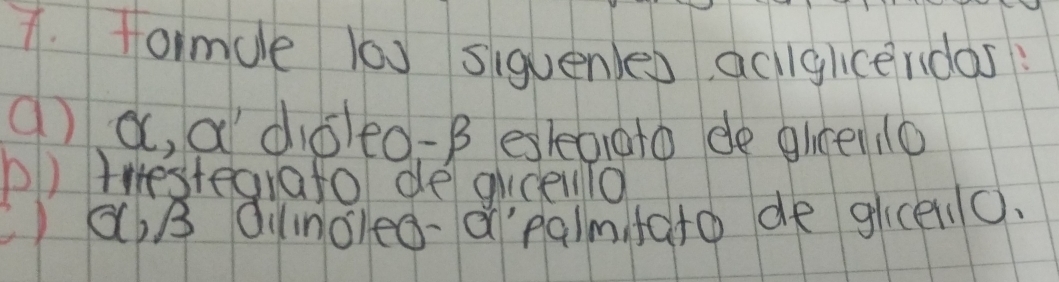 7. Formule los siguientes acilglicéridos:
a) α, α' dióleo-β estearato de glicerilo
b) triestearato de glicerilo
c) α, β dilinóleo- α' palmitato de glicerilo.